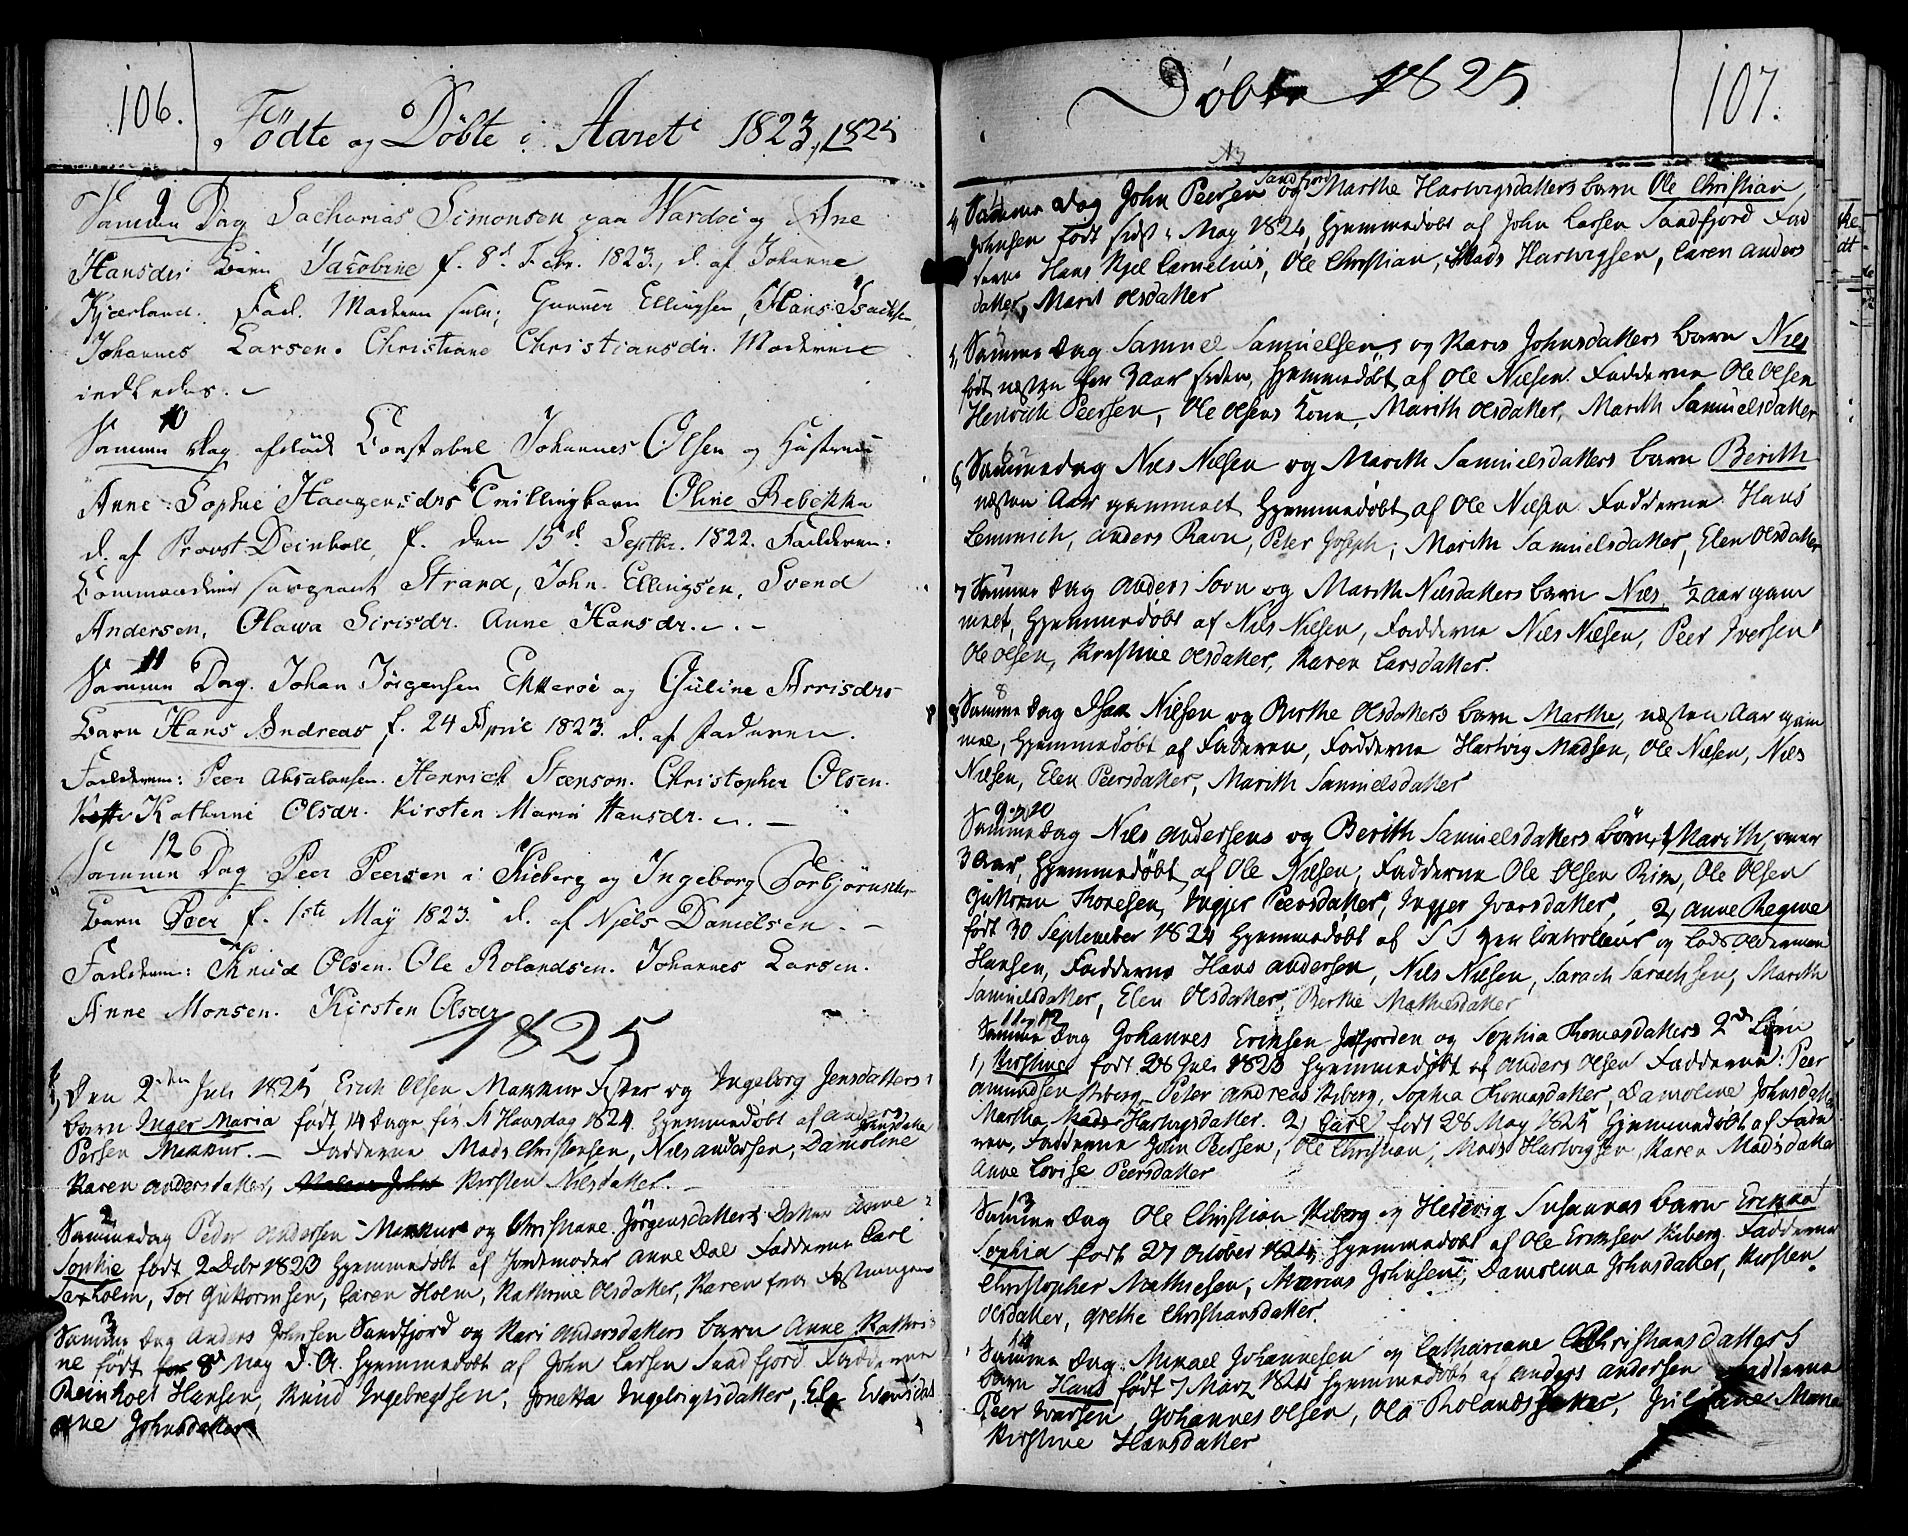 106.
Födte og Döbte i Aaret 1823, 1825
9
Samme Dag Zacharias Simonsen paa Wardöe og Ane
Hansdr Barn Jacobine f. 8d Febr. 1823., d. af Johanne
Kjerland. Fad. Moderen selv, Gunner Ellingsen, Hans Isachsen
Johannes Larsen. Christiane Christiansdr. Moderen
indledes.
10
Samme Dag Constabel Johannes Olsen og Hustrue
Anne Sophie Haagensdrs Tvillingbarn Oline Rebekka
d. af Provst Deinboll, f. den 15d Septbr. 1822. Fadderne:
Commandeer Sergeant Strand, John Ellingsen, Svend
Andersen, Olawa Sirisdr. Anne Hansdr.
11
Samme Dag. Johan Jörgensen Ekkeröe og Guline Arrisdrs
Barn Hans Andreas f. 24 April 1823. d. af Faderen.
Fadderne: Peer Absalonsen. Henrich Steenson. Christopher Olsen.
Kathrine Olsdr. Kirsten Maria Hansdr.
12
Samme Dag Peer Peersen i Kieberg og Ingeborg Torbjörnsdr
Barn Peer f. 1ste May 1823. d. af Njels Danielsen.
Fadderne: Knud Olsen. Ole Rolandsen. Johannes Larsen.
Anne Monsen. Kirsten Olsdr
1825
1, Den 2den Juli 1825 Erich Olsen Makkur Fister og Ingeborg Jensdatters
barn Inger Maria födt 14 Dage för St Hansdag 1824. Hjemmedøbt af Anders
Persen Makkur. Fadderne Mads Christensen, Nils Anderssen, Damoline Hansdatter
Karen Andersdatter, Kirsten Nilsdatter.
2
Sammedag Peder Andersen Makkur og Christiane Jörgensdatters Datter Anne
Sophie født 2 Debr 1823 Hjemmedøbt af Jordemoder Anne Dal Fadderne Carl
Saxholm, Tor Guttormsen, Caren Holm, Kathrine Olsdatter, Karen fra Fæstningen
3
Samme Dag Anders Johnsen Sandfjord og Kari Andersdatters barn Anne Kathri
ne født 8d May D. A. Hjemmedøbt af John Larsen Sandfjord Fadderne
Reinholt Hansen, Knud Ingebregtsen, Jonetta Ingebrigtsdatter, Elen
ane Johnsdatter
107.
Døbte 1825
4, Samme Dag John Peersen Sandfjord og Marthe Hartvigsdatters barn Ole Christian
Johnsen født sidst i May 1824, Hjemmedøbt af John Larsen Sandfjord Fad
derne Hans Kjel Cornelius, Ole Christian, Mads Hartvigsen, Caren Anders
datter, Marit Olsdatter
5, Samme Dag Samuel Samuelsens og Karis Johnsdatters barn Nils
født næsten for 3 aar siden, Hjemmedøbt af Ole Nielsen. Fadderne Ole Olsen
Henrich Peersen, Ole Olsens Kone, Marith Olsdatter, Marith Samuelsdatter
6, Sammedag Nils Nielsen og Marith Samuelsdatters barn Berith
næsten Aar gammelt Hjemmedøbt af Ole Nielsen Fadderne Hans
Lemmich, Anders Ravn, Peter Joseph, Marith Samuelsdatter, Elen Olsdatter
7 Samme Dag Anders Sovn og Marith Nilsdatters barn Nils, ½ Aar gam
melt, Hjemmedøbt af Nils Nielsen, Fadderne Nils Nielsen, Peer Iversen
Ole Olsen, Kristine Olsdatter, Karen Larsdatter.
8 Samme Dag Isak Nielsen og Birthe Olsdatters barn Marthe, næsten Aar gam
mel, Hjemmedøbt af Faderen, Fadderne Hartvig Madsen, Ole Nielsen, Nils
Nielsen, Elen Peersdatter, Marith Samuelsdatter
9 og 10
Samme Dag Nils Andersens og Berith Samuelsdatters børn, 1, Marith, over
3 Aar, Hjemmedøbt af Ole Nielsen, Fadderne Ole Olsen Rim, Ole Olsen
Guttorm Thoresen, Ingjer Peersdatter, Ingjer Iversdatter, 2, Anne Regine
født 30 September 1824 Hjemmedøbt af og Lods Olderman
Hansen, Fadderne Hans Andersen, Nils Nielsen, Sarach Sarachsen, Marith
Samuelsdatter, Elen Olsdatter, Berthe Mathiesdatter
11 og 12
Samme Dag Johannes Eriksen Jafjorden og Sophia Thomasdatters 2de Børn
1, Kirstine født 28 Juli 1823 Hjemmedøbt af Anders Olsen Fadderne: Peer
Amundsen Kiberg, Peter Andreas Kiberg, Sophia Thomasdatter, Damoline Johnsdatter
Martha Hartvigsdatter. 2, Carl født 28 May 1825 Hjemmedøbt af Fade
ren, Fadderne John Persen, Ole Christian, Mads Hartvigsen, Karen Madsdatter
Anne Lovise Peersdatter
13
Samme Dag Ole Christian Kiberg og Hedevig Susannas barn Erikka
Sophia født 27 October 1824, Hjemmedøbt af Ole Eriksen Kiberg. Fadderne
Christopher Mathiesen, Marius Johnsen, Damolina Johnsdatter, Kirsten
Olsdatter, Grethe Christiansdatter.
14
Samme Dag Mikael Johannesen og Cathariane Christiansdatters
barn Hans født 7 Marz 1825 Hjemmedøbt af Anders Andersen Fadderne
Peer Iversen, Johannes Olsen, Ola Rolandsdatter, Juliane Maria
Kirstine Hansdatter